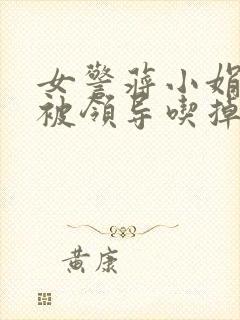 女警蒋小娟
被领导喫掉
黄康